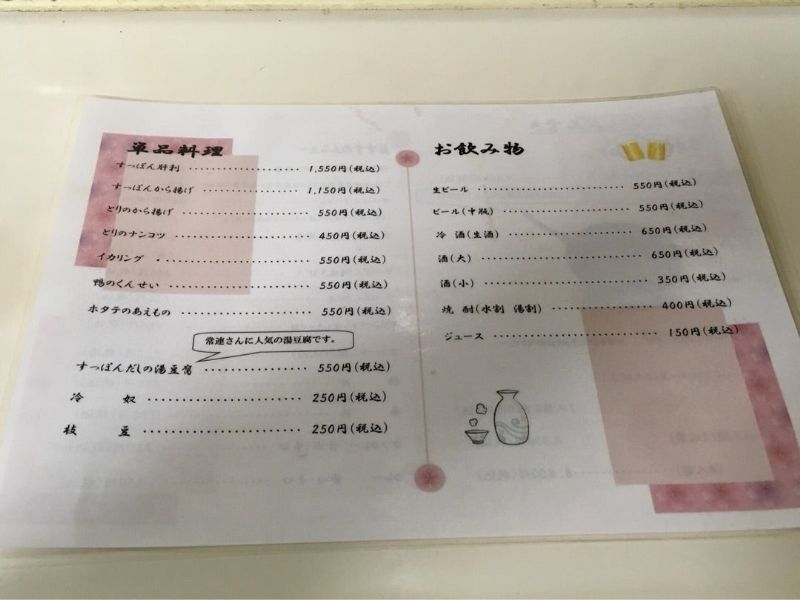 単品料理
すっぽん肝刺 1,550円(税込)
すっぽんから揚げ 1,150円(税込)
とりのから揚げ 550円(税込)
とりのナンコツ 450円(税込)
イカリング 550円(税込)
鴨のくんせい 550円(税込)
ホタテのあえもの 550円(税込)
常連さんに人気の湯豆腐です。
すっぽんだしの湯豆腐 550円(税込)
冷 奴 250円(税込)
枝 豆 250円(税込)
お飲み物
生ビール 550円(税込)
ビール(中瓶) 550円(税込)
冷 酒(生酒) 650円(税込)
酒(大) 650円(税込)
酒(小) 350円(税込)
焼 酎(水割 湯割) 400円(税込)
ジュース 150円(税込)